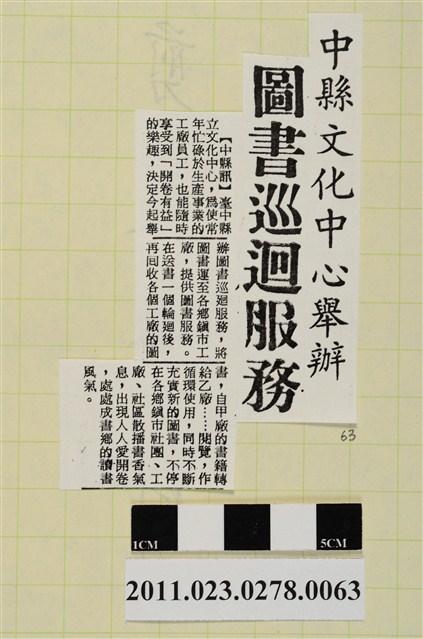 中縣文化中心舉辦
圖書巡迴服務
【中縣訊】臺中縣
立文化中心，為使常
年忙碌於生產事業的
工廠員工，也能隨時
享受到「開卷有益」
的樂趣，決定今起舉
辦圖書巡迴服務，將
圖書運至各鄉鎮市工
廠，提供圖書服務。
在送書一個輪迴後，
再回收各個工廠的圖
書，自甲廠的書籍轉
給乙廠……閱覽，作
循環使用，同時不斷
充實新的圖書，不停
在各鄉鎮市社團、工
廠、社區散播書香氣
息，出現人人愛開卷
，處處成書鄉的讀書
風氣。
63
1CM 5CM
2011.023.0278.0063